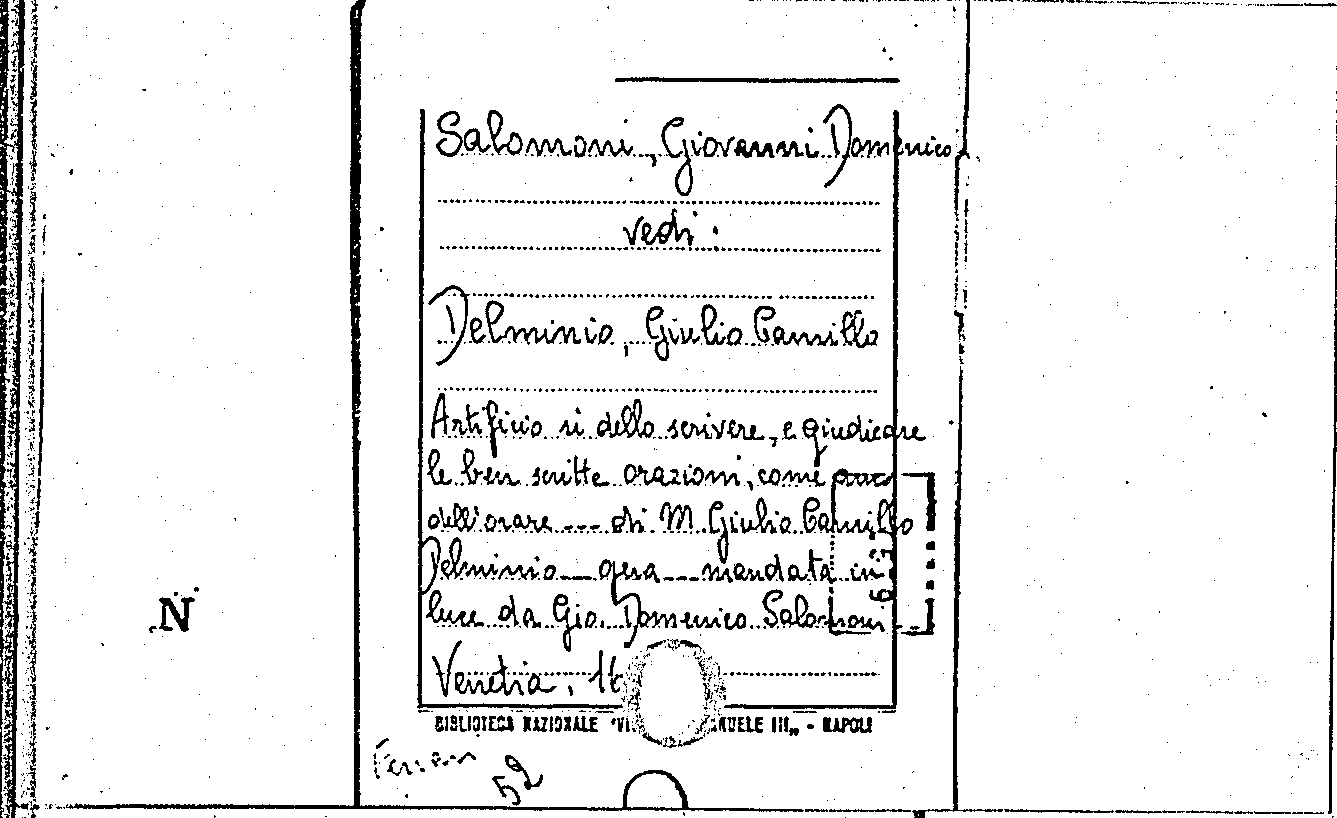 Salomoni, Giovanni Domenico.
vedi:
Delminio, Giulio Camillo
Artificio sì dello scrivere, e giudicare
le ben scritte orazioni, come anco
dell'orare --- di M. Giulio Camillo
Delminio --- opera --- mandata in
luce da Gio. Domenico Salomoni ...
Venetia, 16
BIBLIOTECA NAZIONALE "VI ANUELE III„ - NAPOLI
52
N